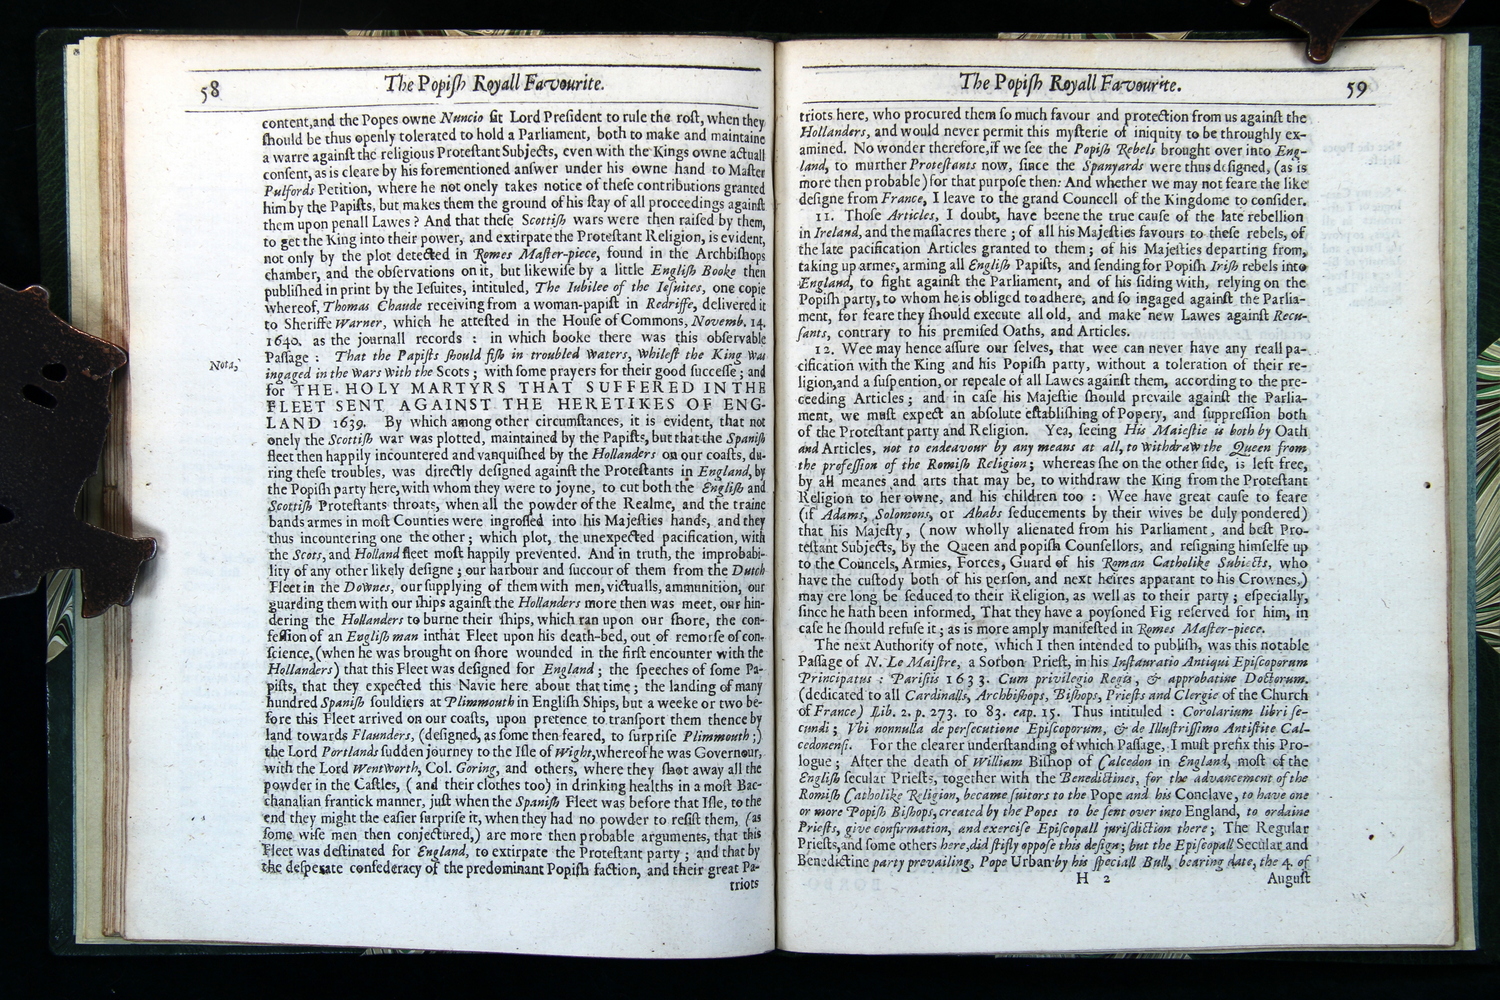 58
The Popiſh Royall Favourite.
content, and the Popes owne Nuncio ſit Lord Preſident to rule the roſt, when they
ſhould be thus openly tolerated to hold a Parliament, both to make and maintaine
a warre againſt the religious Proteſtant Subjects, even with the Kings owne actuall
conſent, as is cleare by his forementioned anſwer under his owne hand to Maſter
Pulfords Petition, where he not onely takes notice of theſe contributions granted
him by the Papiſts, but makes them the ground of his ſtay of all proceedings againſt
them upon penall Lawes ? And that theſe Scottiſh wars were then raiſed by them,
to get the King into their power, and extirpate the Proteſtant Religion, is evident,
not only by the plot detected in Romes Maſter-piece, found in the Archbiſhops
chamber, and the obſervations on it, but likewiſe by a little Engliſh Booke then
publiſhed in print by the Ieſuites, intituled, The Iubilee of the Ieſuites, one copie
whereof, Thomas Chaude receiving from a woman-papiſt in Redriffe, delivered it
to Sheriffe Warner, which he atteſted in the Houſe of Commons, Novemb. 14.
1640. as the journall records : in which booke there was this obſervable
Nota,
Paſſage : That the Papiſts ſhould fiſh in troubled Waters, Whileſt the King Was
ingaged in the Wars With the Scots ; with ſome prayers for their good ſucceſſe ; and
for THE HOLY MARTYRS THAT SUFFERED IN THE
FLEET SENT AGAINST THE HERETIKES OF ENG-
LAND 1639. By which among other circumſtances, it is evident, that not
onely the Scottiſh war was plotted, maintained by the Papiſts, but that the Spaniſh
fleet then happily incountered and vanquiſhed by the Hollanders on our coaſts, du-
ring theſe troubles, was directly deſigned againſt the Proteſtants in England, by
the Popiſh party here, with whom they were to joyne, to cut both the Engliſh and
Scottiſh Proteſtants throats, when all the powder of the Realme, and the traine
bands armes in moſt Counties were ingroſſed into his Majeſties hands, and they
thus incountering one the other ; which plot, the unexpected pacification, with
the Scots, and Holland fleet moſt happily prevented. And in truth, the improbabi-
lity of any other likely deſigne ; our harbour and ſuccour of them from the Dutch
Fleet in the Downes, our ſupplying of them with men, victualls, ammunition, our
guarding them with our ſhips againſt the Hollanders more then was meet, our hin-
dering the Hollanders to burne their ſhips, which ran upon our ſhore, the con-
feſſion of an Engliſh man in that Fleet upon his death-bed, out of remorſe of con-
ſcience, (when he was brought on ſhore wounded in the firſt encounter with the
Hollanders) that this Fleet was deſigned for England ; the ſpeeches of ſome Pa-
piſts, that they expected this Navie here about that time ; the landing of many
hundred Spaniſh ſouldiers at Plimmouth in Engliſh Ships, but a weeke or two be-
fore this Fleet arrived on our coaſts, upon pretence to tranſport them thence by
land towards Flaunders, (deſigned, as ſome then feared, to ſurpriſe Plimmouth ;)
the Lord Portlands ſudden journey to the Iſle of Wight, whereof he was Governour,
with the Lord Wentworth, Col. Goring, and others, where they ſhot away all the
powder in the Caſtles, ( and their clothes too) in drinking healths in a moſt Bac-
chanalian frantick manner, juſt when the Spaniſh Fleet was before that Iſle, to the
end they might the eaſier ſurpriſe it, when they had no powder to reſiſt them, (as
ſome wiſe men then conjectured,) are more then probable arguments, that this
Fleet was deſtinated for England, to extirpate the Proteſtant party ; and that by
the deſperate confederacy of the predominant Popiſh faction, and their great Pa-
triots
The Popiſh Royall Favourite.
59
triots here, who procured them ſo much favour and protection from us againſt the
Hollanders, and would never permit this myſterie of iniquity to be throughly ex-
amined. No wonder therefore, if we ſee the Popiſh Rebels brought over into Eng-
land, to murther Proteſtants now, ſince the Spanyards were thus deſigned, (as is
more then probable) for that purpoſe then: And whether we may not feare the like
deſigne from France, I leave to the grand Councell of the Kingdome to conſider.
11. Thoſe Articles, I doubt, have beene the true cauſe of the late rebellion
in Ireland, and the maſſacres there ; of all his Majeſties favours to theſe rebels, of
the late pacification Articles granted to them ; of his Majeſties departing from,
taking up armes, arming all Engliſh Papiſts, and ſending for Popiſh Iriſh rebels into
England, to fight againſt the Parliament, and of his ſiding with, relying on the
Popiſh party, to whom he is obliged to adhere, and ſo ingaged againſt the Parlia-
ment, for feare they ſhould execute all old, and make new Lawes againſt Recu-
ſants, contrary to his premiſed Oaths, and Articles.
12. Wee may hence aſſure our ſelves, that wee can never have any reall pa-
cification with the King and his Popiſh party, without a toleration of their re-
ligion, and a ſuſpention, or repeale of all Lawes againſt them, according to the pre-
ceeding Articles ; and in caſe his Majeſtie ſhould prevaile againſt the Parlia-
ment, we muſt expect an abſolute eſtabliſhing of Popery, and ſuppreſſion both
of the Proteſtant party and Religion. Yea, ſeeing His Maieſtie is both by Oath
and Articles, not to endeavour by any means at all, to Withdraw the Queen from
the profeſſion of the Romiſh Religion ; whereas ſhe on the other ſide, is left free,
by all meanes and arts that may be, to withdraw the King from the Proteſtant
Religion to her owne, and his children too : Wee have great cauſe to feare
(if Adams, Solomons, or Ahabs ſeducements by their wives be duly pondered)
that his Majeſty, (now wholly alienated from his Parliament, and beſt Pro-
teſtant Subjects, by the Queen and popiſh Counſellors, and reſigning himſelfe up
to the Councels, Armies, Forces, Guard of his Roman Catholike Subiects, who
have the cuſtody both of his perſon, and next heires apparant to his Crownes,)
may ere long be ſeduced to their Religion, as well as to their party ; eſpecially,
ſince he hath been informed, That they have a poyſoned Fig reſerved for him, in
caſe he ſhould refuſe it ; as is more amply manifeſted in Romes Maſter-piece.
The next Authority of note, which I then intended to publiſh, was this notable
Paſſage of N. Le Maiſtre, a Sorbon Prieſt, in his Inſtauratio Antiqui Epiſcoporum
Principatus : Pariſiis 1633. Cum privilegio Regis, & approbatine Doctorum.
(dedicated to all Cardinalls, Archbiſhops, Biſhops, Prieſts and Clergie of the Church
of France) Lib. 2. p. 273. to 83. cap. 15. Thus intituled : Corolarium libri ſe-
cundi ; Vbi nonnulla de perſecutione Epiſcoporum, & de Illuſtriſſimo Antiſtite Cal-
cedonenſi. For the clearer underſtanding of which Paſſage, I muſt prefix this Pro-
logue ; After the death of William Biſhop of Calcedon in England, moſt of the
Engliſh ſecular Prieſts, together with the Benedictines, for the advancement of the
Romiſh Catholike Religion, became ſuitors to the Pope and his Conclave, to have one
or more Popiſh Biſhops, created by the Popes to be ſent over into England, to ordaine
Prieſts, give confirmation, and exerciſe Epiſcopall juriſdiction there ; The Regular
Prieſts, and ſome others here, did ſtifly oppoſe this deſign ; but the Epiſcopall Secular and
Benedictine party prevailing, Pope Urban by his ſpeciall Bull, bearing date, the 4. of
H 2
Auguſt